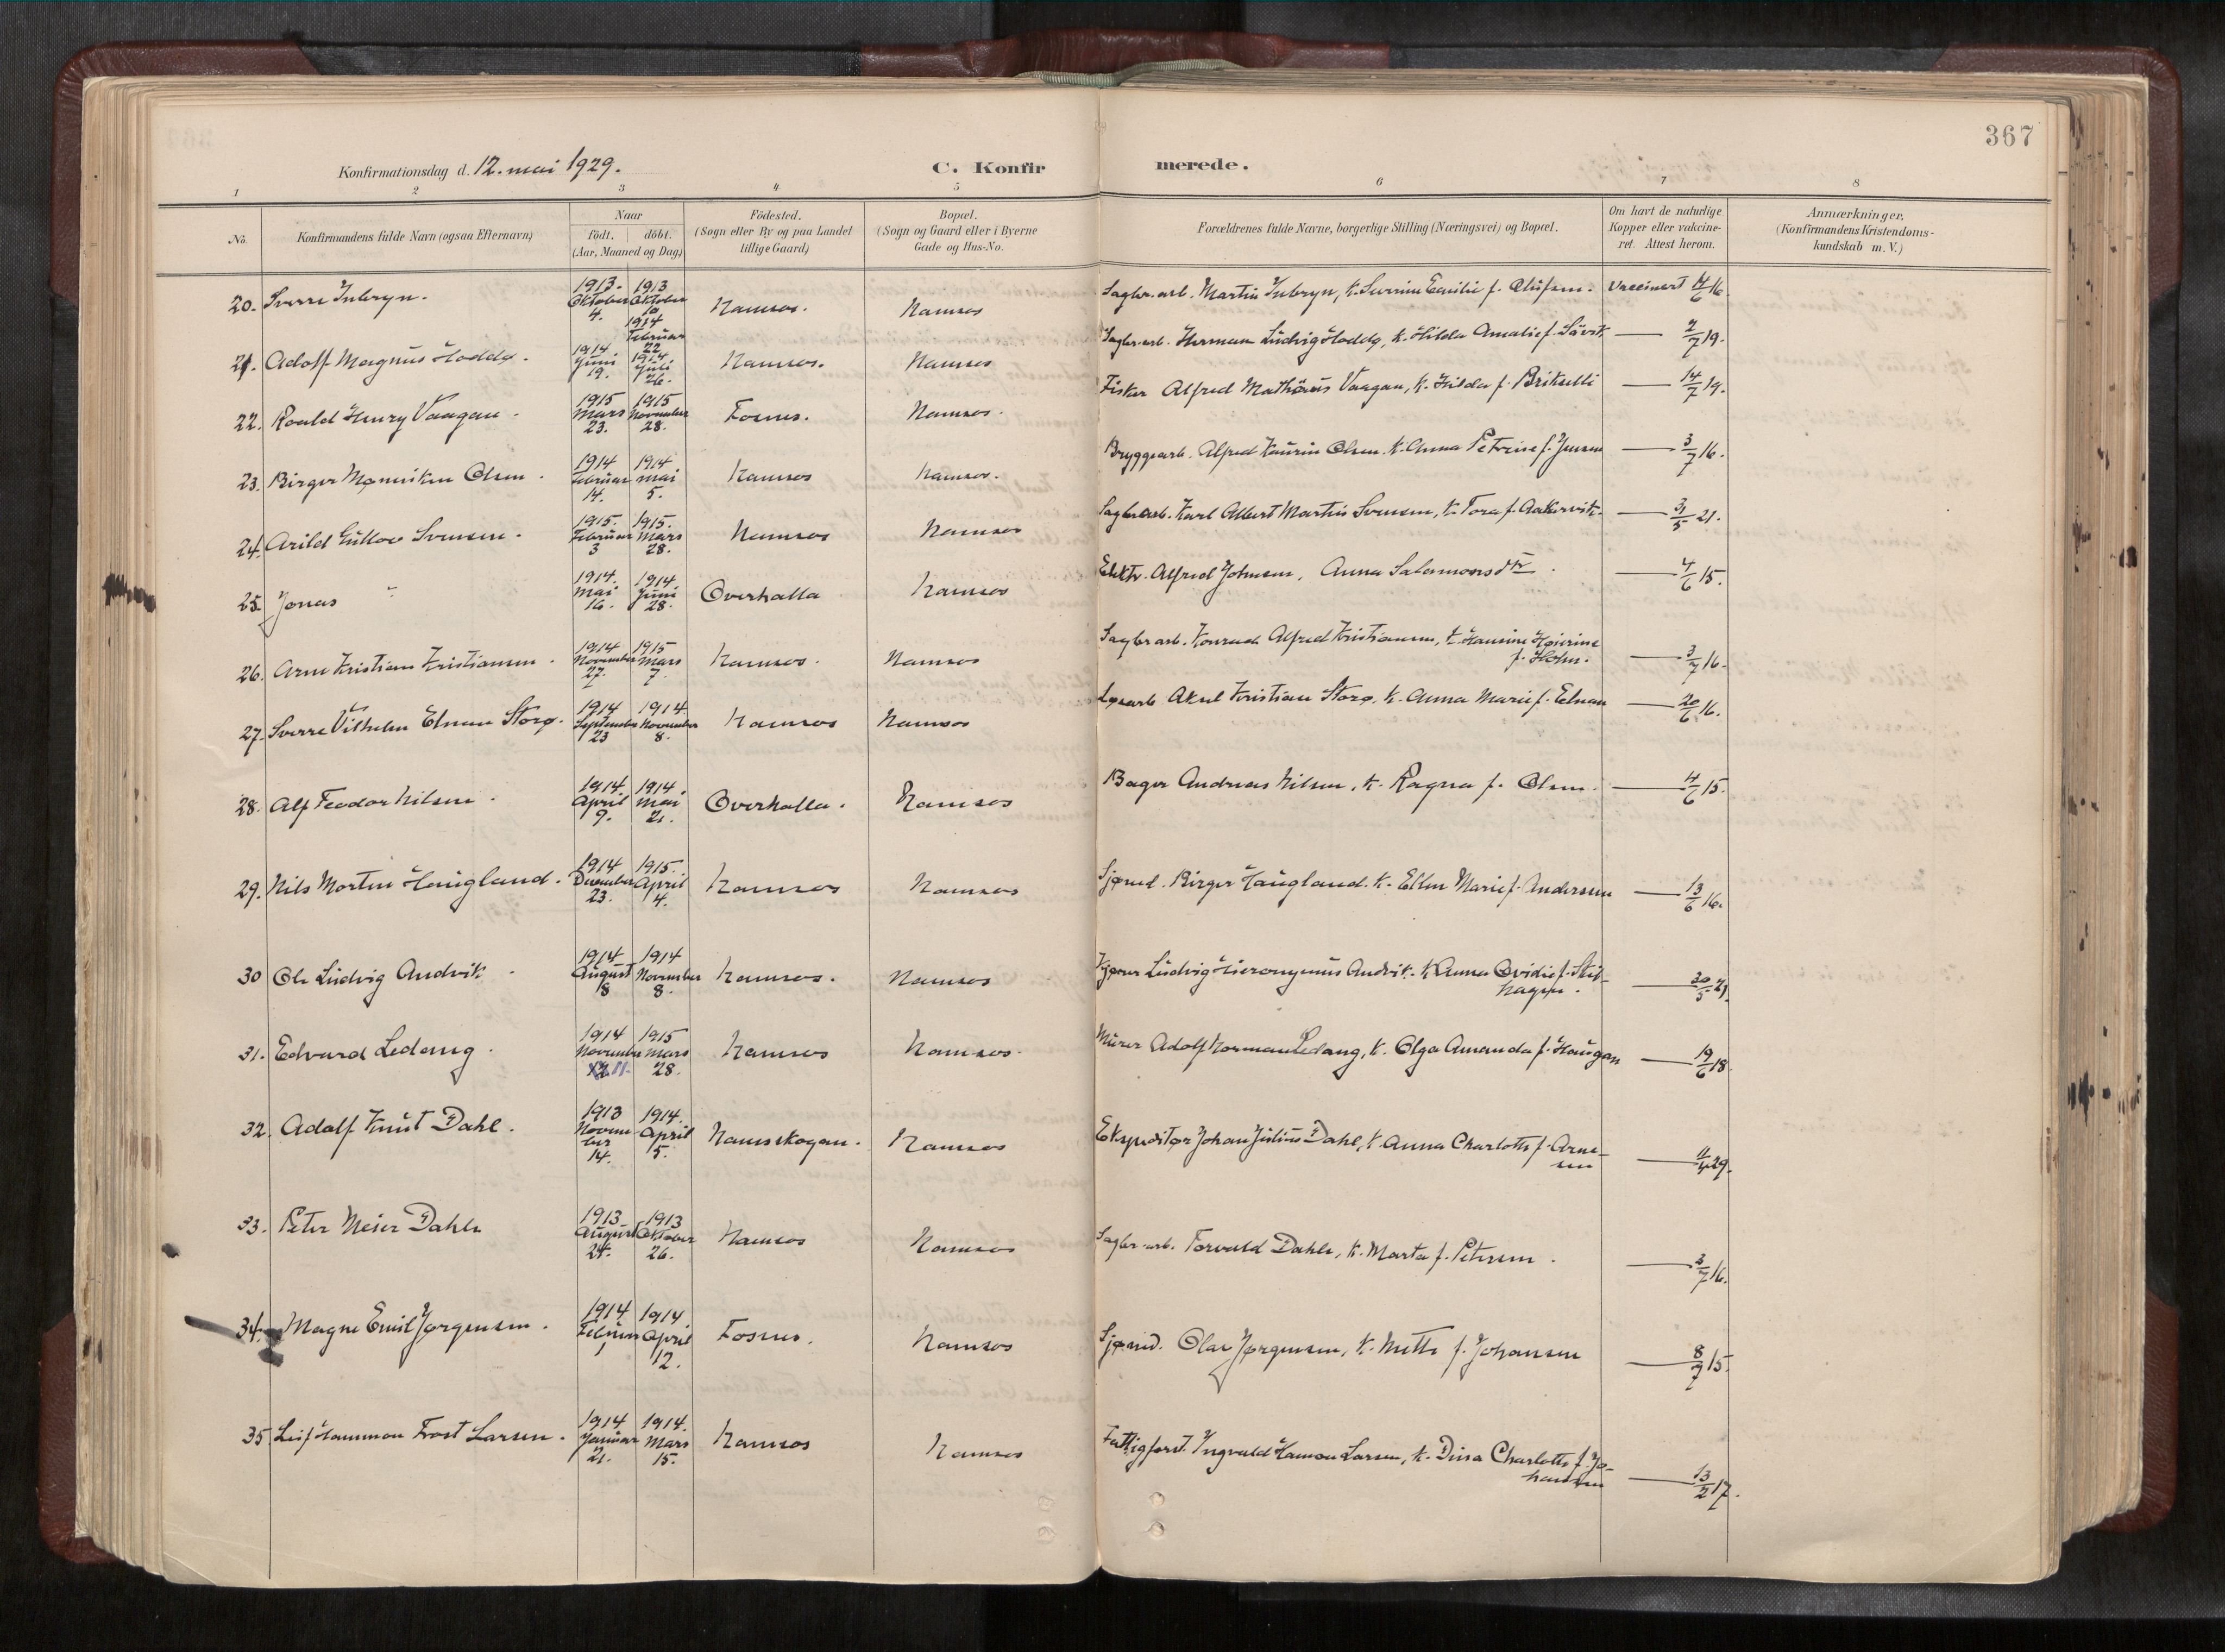 367
Konfirmationsdag d. 12. mai 1929.
C. Konfirmerede.
1 2 3 4 5 6 7 8
No. Konfirmandens fulde Navn (ogsaa Efternavn) Naar født. døbt. (Aar, Maaned og Dag) Fødested. (Sogn eller By og paa Landet tillige Gaard) Bopæl. (Sogn og Gaard eller i Byerne Gade og Hus-No. Forældrenes fulde Navne, borgerlige Stilling (Næringsvei) og Bopæl. Om havt de naturlige Kopper eller vaccineret. Attest herom. Anmærkninger. (Konfirmandens Kristendomskundskab m. V.)
20. Sverre 1913. Oktober 4. 1913 Oktober Namsos. Namsos Sagbr.arb. Martin f. Olufsen. Vaccinert
1914 Februar 22
21. Adolf Magnus Hoddø. 1914 Juni 19. 1914. Juli 26. Namsos. Namsos Sagbr.arb. Herman Ludvig Hoddø, k. Hilda Amalie f. — 2/7 19.
22. Roald Henry Vaagan. 1915 Mars 23. 1915 November 28. Fosnes. Namsos. Fisker Alfred Mathæus Vaagan, k. Hilda f. — 14/7 19.
23. Birger Olsen. 1914 Februar 14. 1914 mai 5. Namsos Namsos. Bryggearb. Alfred Olsen. k. Anna Petrine f. Jensen — 3/7 16.
24. Arild Svensen. 1915. Februar 3 1915. Mars 28. Namsos Namsos Sagbr.arb. Karl Albert Martin Svensen, k. Tora f. Aakervik. — 31/5 21.
25. Jonas " 1914. Mai 16. 1914. Juni 28. Overhalla Namsos Elektr. Alfred Johnsen, Anna Salamonsdtr. — 4/6 15.
26. Arne Kristian Kristiansen. 1914 November 27. 1915 Mars 7. Namsos. Namsos Sagbr.arb. Konrad Alfred Kristiansen, k. Hansine f. Holm. — 3/7 16.
27. Sverre Vilhelm Elnan Storø. 1914 September 23 1914. November 8. Namsos Namsos Løsarb Aksel Kristian Storø, k. Anna Marie f. Elnan — 20/6 16.
28. Alf Teodor Nilsen. 1914. April 9. 1914. Mai 21. Overhalla. Namsos Bager Andreas Nilsen, k. Ragna f. Olsen. — 4/6 15.
29. Nils Morten Haugland. 1914 December 23. 1915. April 4. Namsos Namsos Sjømd. Birger Haugland. k. Ellen Marie f. Andersen — 13/6 16.
30 Ole Ludvig Andvik 1914 August 8 1914 November 8. Namsos. Namsos Ludvig Hieronymus Andvik. k. Anna Ovidie f. — 30/5 21.
31. Edvard Ledang. 1914 November 11. 1915 mars 28. Namsos Namsos. Murer Adolf Norman Ledang, k. Olga Amanda f. Haugan — 19/6 18
32. Adolf Knut Dahl. 1913 November 14. 1914. April 5. Namsskogan. Namsos Ekspeditør Johan Julius Dahl, k. Anna Charlotte f. Arnesen — 29.
33. Peter Meier Dahle 1913 August 24. 1913 Oktober 26. Namsos Namsos Sagbr.arb. Torvald Dahle, k. Marta f. Petersen. — 3/7 16.
34. Magne Emil Jørgensen. 1914. Februar 1 1914. April 12. Fosnes. Namsos Sjømd. Olav Jørgensen, k. Mette f. Johansen — 8/7 15.
35 Leif Hammon Frost Larsen. 1914. Januar 21. 1914. Mars 15. Namsos Namsos Fattigforst. Ingvald Hamon Larsen, k. Dina Charlotte f. Johansen — 13/2 17.